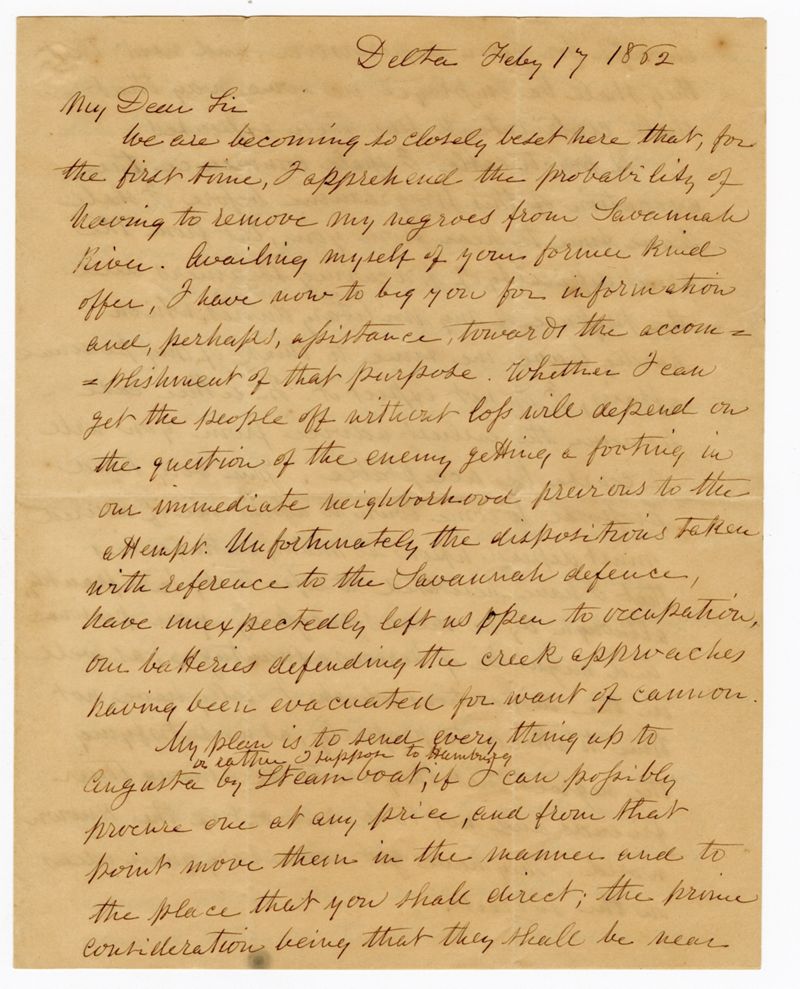 Delta Feby 17 1862
My Dear Sir
We are becoming so closely beset here that, for
the first time, I apprehend the probability of
having to remove my negroes from Savannah
River. Availing myself of your former kind
offer, I have now to beg you for information
and, perhaps, assistance, towards the accom=
=plishment of that purpose. Whether I can
get the people off without loss will depend on
the question of the enemy getting a footing in
our immediate neighborhood previous to the
attempt. Unfortunately the dispositions taken
with reference to the Savannah defence,
have unexpectedly left us open to occupation,
our batteries defending the creek approaches
having been evacuated for want of cannon.
My plan is to send every thing up to
or rather I suppose to Hamburg
Augusta by Steamboat, if I can possibly
procure one at any price, and from that
point move them in the manner and to
the place that you shall direct; the prime
consideration being that they shall be near